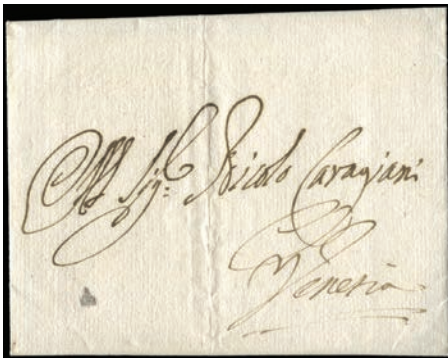 Al Sig.r Nicolo Caragiani
Venezia